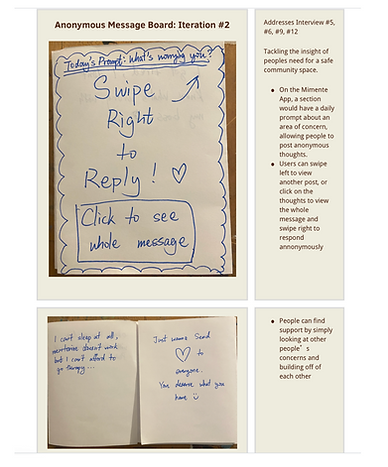 Anonymous Message Board: Iteration #2
Today's Prompt: What's worrying you?
Swipe
Right
to
Reply! ♡
Click to see
whole message
Addresses Interview #5,
#6, #9, #12
Tackling the insight of
peoples need for a safe
community space.
• On the Mimente
App, a section
would have a daily
prompt about an
area of concern,
allowing people to
post anonymous
thoughts.
• Users can swipe
left to view
another post, or
click on the
thoughts to view
the whole
message and
swipe right to
respond
annonymously
I can't sleep at all,
melatonin doesn't work
but I can't afford to
go therapy...
Just wanna send
♡ to
everyone.
You deserve what you
have
• People can find
support by simply
looking at other
people's
concerns and
building off of
each other